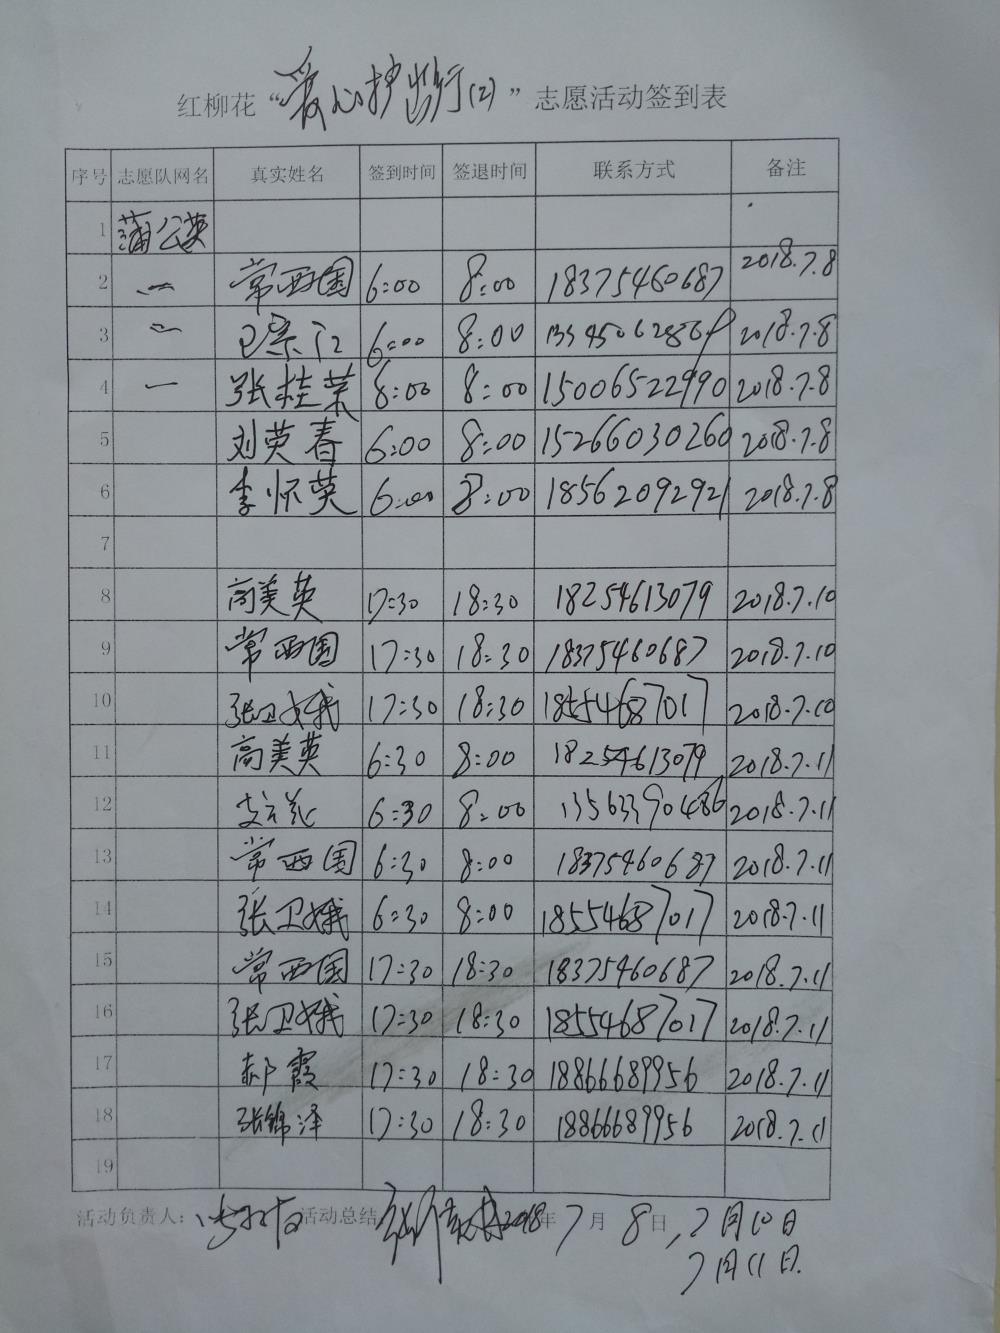 红柳花“爱心护出行(2)”志愿活动签到表
序号 志愿队网名 真实姓名 签到时间 签退时间 联系方式 备注
1 蒲公英
2 常西国 6:00 8:00 18375460687 2018.7.8
3 6:00 8:00 2018.7.8
4 张桂荣 8:00 8:00 15006522990 2018.7.8
5 刘英春 6:00 8:00 15266030260 2018.7.8
6 李怀英 6:00 8:00 18562092921 2018.7.8
7
8 高美英 17:30 18:30 18254613079 2018.7.10
9 常西国 17:30 18:30 18375460687 2018.7.10
10 张卫娥 17:30 18:30 18554687017 2018.7.10
11 高美英 6:30 8:00 18254613079 2018.7.11
12 6:30 8:00 13563390486 2018.7.11
13 常西国 6:30 8:00 18375460687 2018.7.11
14 张卫娥 6:30 8:00 18554687017 2018.7.11
15 常西国 17:30 18:30 18375460687 2018.7.11
16 张卫娥 17:30 18:30 18554687017 2018.7.11
17 郝霞 17:30 18:30 18866689956 2018.7.11
18 张锦泽 17:30 18:30 18866689956 2018.7.11
19
活动负责人: 活动总结 2018年7月8日,7月10日
7月11日.